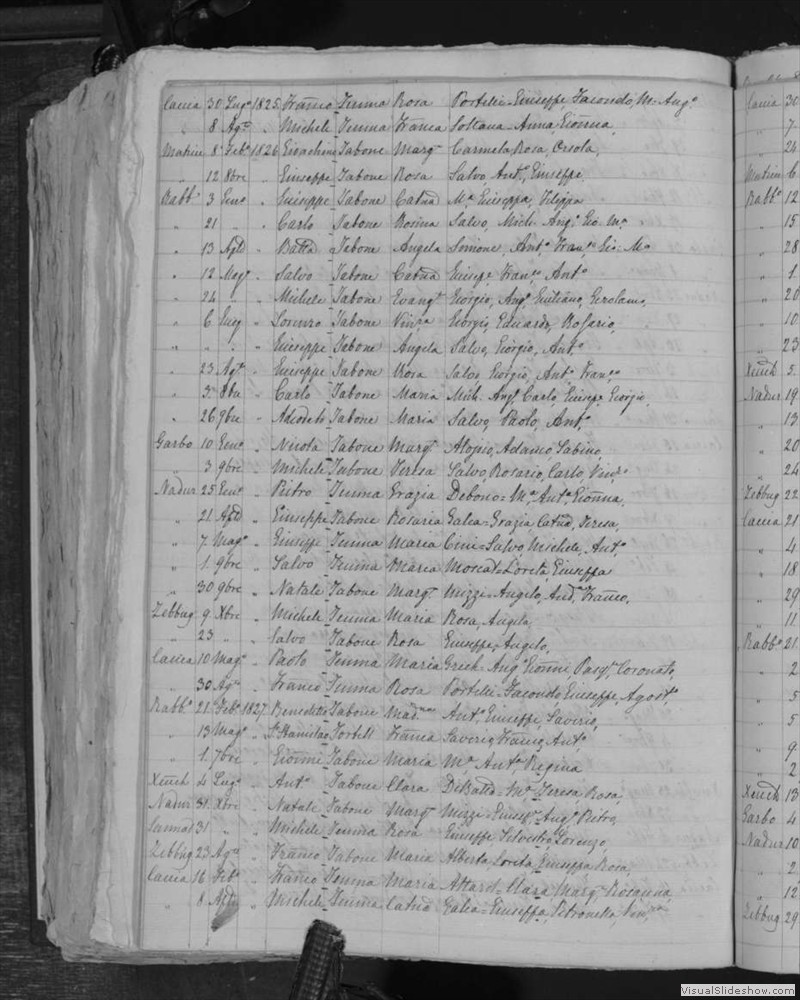 Caccia 30 Lugo 1825 Franco Tumma Rosa Portelli - Giuseppe, Facondo, M. Ango
" 8 Ago " Michele Tumma Franca Soltana - Anna, Gionna,
8 Febo 1826 Gioachino Tabone Marga Carmela, Rosa, Orsola,
" 12 8bre " Giuseppe Tabone Rosa Salvo Anto, Giuseppe,
Rabbo 3 Geno " Giuseppe Tabone Catna Ma Giuseppa, Filippa
" 21 " " Carlo Tabone Rosina Salvo, Mich. Ango Gio. Ma
" 13 " Batta Tabone Angela Simone, Anto Frano Gio. Ma
" 12 Mago " Salvo Tabone Catna Giuse Frano Anto
" 24 " " Michele Tabone Evangta Giorgio, Ango Giuliano, Gerolamo,
" 6 " Lorenzo Tabone Vinza Giorgio, Eduardo, Rosario,
" " " Giuseppe Tabone Angela Salvo, Giorgio, Anto
" 23 Ago " Giuseppe Tabone Rosa Salvo, Giorgio, Anto Frano
" 3 8bre " Carlo Tabone Maria Mich. Ango Carlo, Giuse Giorgio,
" 26 9bre " Adeodato Tabone Maria Salvo, Paolo, Anto
Garbo 10 Geno " Nicola Tabone Marga Aloisio, Adamo, Sabino,
" 3 9bre " Michele Tabone Teresa Salvo, Rosario, Carlo, Vinzo
Nadur 25 Geno " Pietro Tumma Grazia Debono - Ma Anta Gionna,
" 21 " Giuseppe Tabone Rosaria Galea - Grazia, Catna, Teresa,
" 7 Mago " Giuseppe Tumma Maria Cini - Salvo, Michele, Anto
" 1 9bre " Salvo Tumma Maria Moscat - Loreta, Giuseppa
" 30 9bre " Natale Tabone Marga Mizzi - Angelo, And. Franco,
Zebbug 9 Xbre " Michele Tumma Maria Rosa, Angela,
" 23 " " Salvo Tabone Rosa Giuseppe, Angelo,
Caccia 10 Mago " Paolo Tumma Maria Grech - Ango Gionni, Pasqe Coronato,
" 30 Ago " Franco Tumma Rosa Portelli - Facondo, Giuseppe, Agosto
Rabbo 21 Febo 1827 Benedetto Tabone Anto, Giuseppe, Saverio,
" 13 Mago " Stanislao Tortell Franca Saverio, Franco, Anto
" 1 7bre " Gionni Tabone Maria Ma Anta Regina
Xeuch 4 Lugo " Anto Tabone Clara DiBatta - Ma Teresa, Rosa,
Nadur 31 Xbre " Natale Tabone Marga Mizzi - Giuse Ango Pietro,
Sannat 31 " " Michele Tumma Rosa Giuseppe, Silvestro, Lorenzo,
Zebbug 23 Ago " Franco Tabone Maria Alberta, Loreta, Giuseppa, Rosa,
Caccia 16 Febo " Franco Tumma Maria Attard - Clara, Marga Rosanna,
" 8 " Michele Tumma Catna Galea - Giuseppa, Petronella, Vinza
Caccia 30
" 7
" 24
6
Rabbo 12
" 15
" 28
" 1
" 20
" 10
" 23
Xeuch 5
Nadur 19
" 13
" 20
" 24
Zebbug 22
Caccia 21
" 4
" 18
" 29
" 11
Rabbo 21
" 2
" 5
" 5
" 9
" 2
Xeuch 13
Garbo 4
Nadur 10
" 2
" 12
Zebbug 29
VisualSlideshow.com